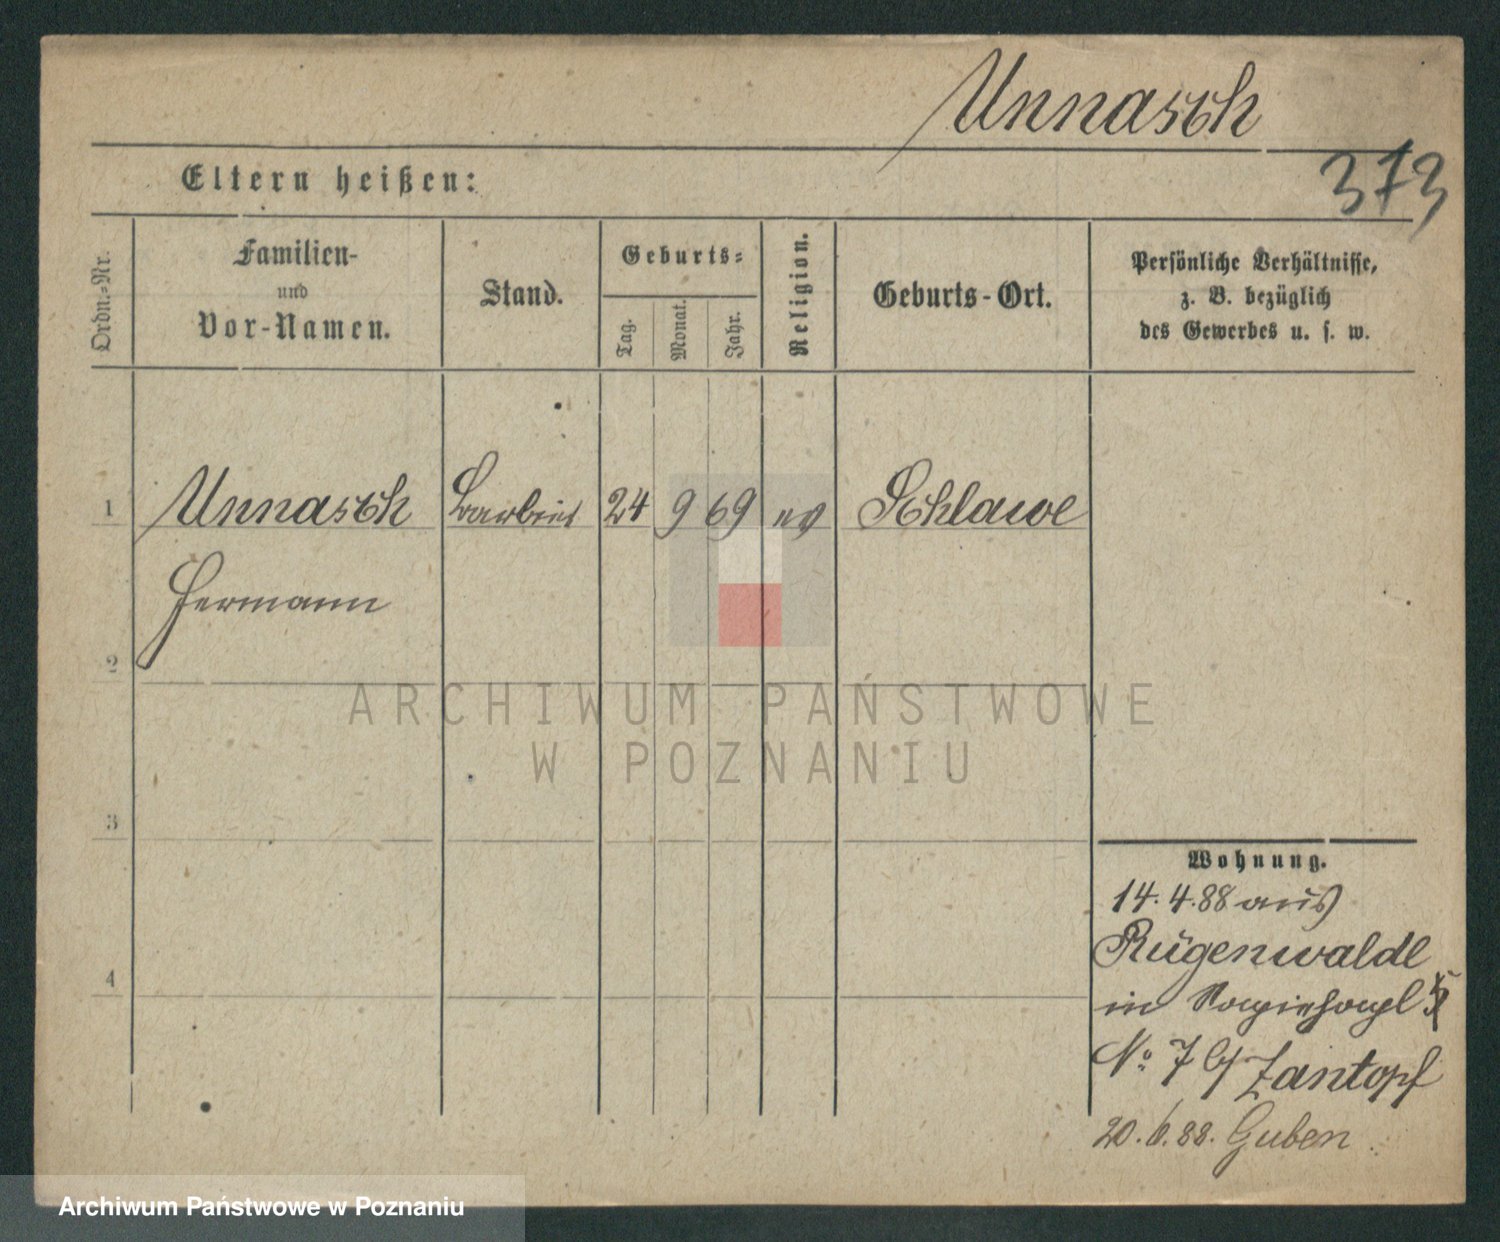 Unnasch
373
Eltern heißen:
Ordn.-Nr.
Familien-
und
Vor-Namen.
Stand.
Geburts-
Tag.
Monat.
Jahr.
Religion.
Geburts-Ort.
Persönliche Verhältnisse,
z. B. bezüglich
des Gewerbes u. s. w.
1 Unnasch Barbier 24 9 69 ev Schlawe
Hermann
2
ARCHIWUM PAŃSTWOWE
W POZNANIU
3
4
Wohnung.
14.4.88 aus
Rügenwalde
in
No 7 b/ Zantopf
20.6.88. Guben
Archiwum Państwowe w Poznaniu